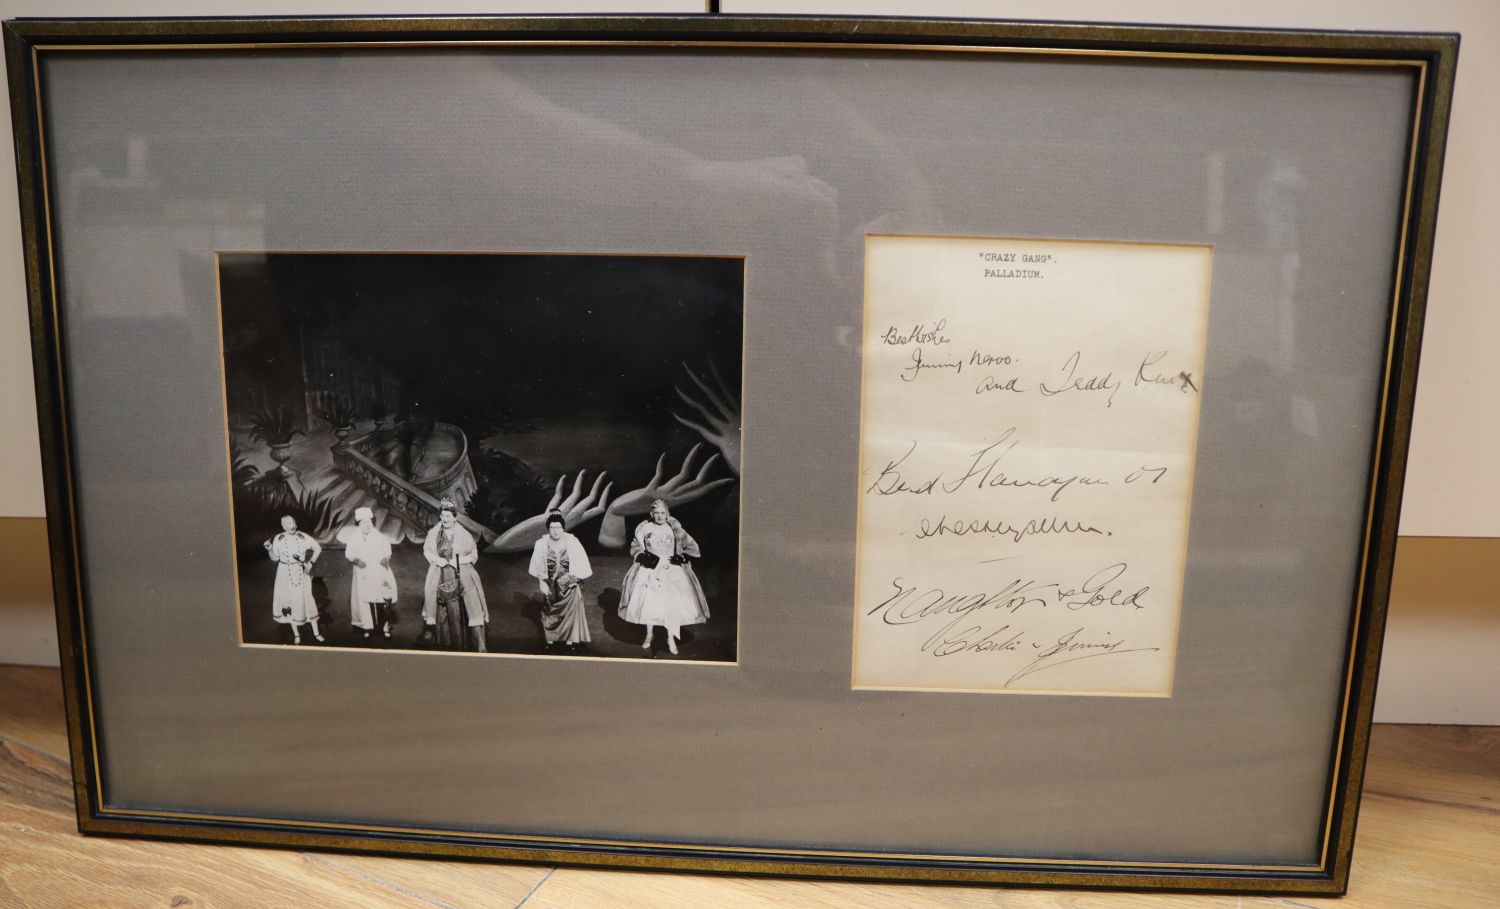 "CRAZY GANG".
PALLADIUM.
Best Wishes
Jimmy Nervo.
and Teddy Knox
Bud Flanagan &
Chesney Allen.
Naughton & Gold
Charlie & Jimmy